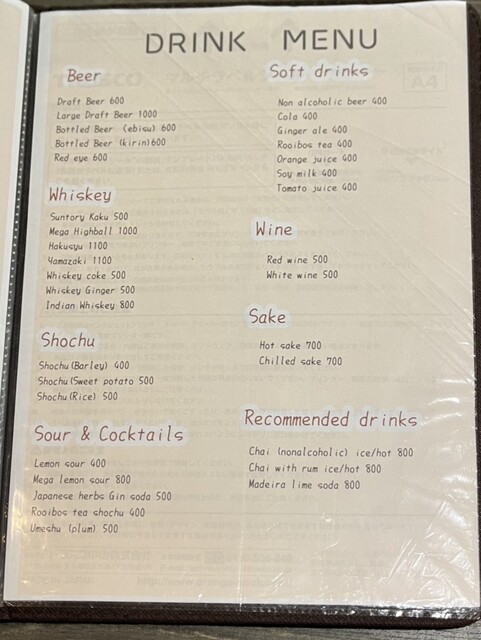 DRINK MENU
Beer
Draft Beer 600
Large Draft Beer 1000
Bottled Beer (ebisu) 600
Bottled Beer (kirin)600
Red eye 600
Whiskey
Suntory Kaku 500
Mega Highball 1000
Hakusyu 1100
Yamazaki 1100
Whiskey coke 500
Whiskey Ginger 500
Indian Whiskey 800
Shochu
Shochu(Barley) 400
Shochu(Sweet potato 500
Shochu(Rice) 500
Sour & Cocktails
Lemon sour 400
Mega lemon sour 800
Japanese herbs Gin soda 500
Rooibos tea shochu 400
Umeshu (plum) 500
Soft drinks
Non alcoholic beer 400
Cola 400
Ginger ale 400
Rooibos tea 400
Orange juice 400
Soy milk 400
Tomato juice 400
Wine
Red wine 500
White wine 500
Sake
Hot sake 700
Chilled sake 700
Recommended drinks
Chai (nonalcoholic) ice/hot 800
Chai with rum ice/hot 800
Madeira lime soda 800